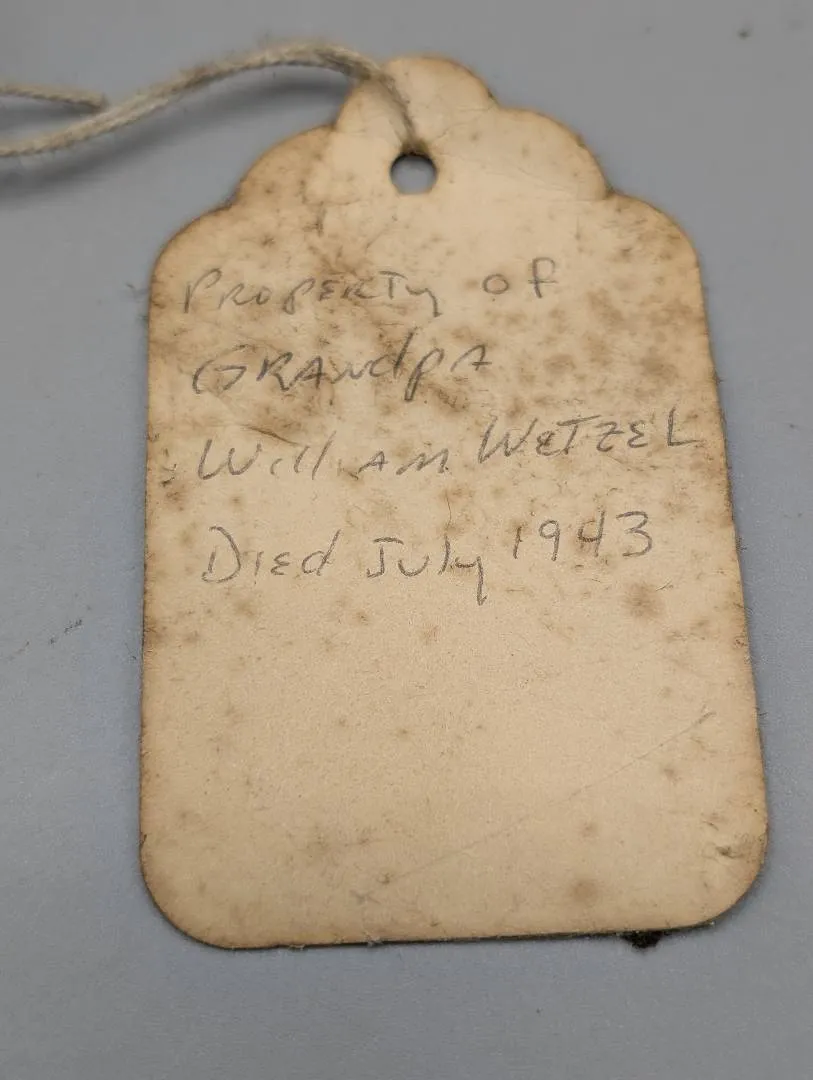 Property of
Grandpa
William Wetzel
Died July 1943